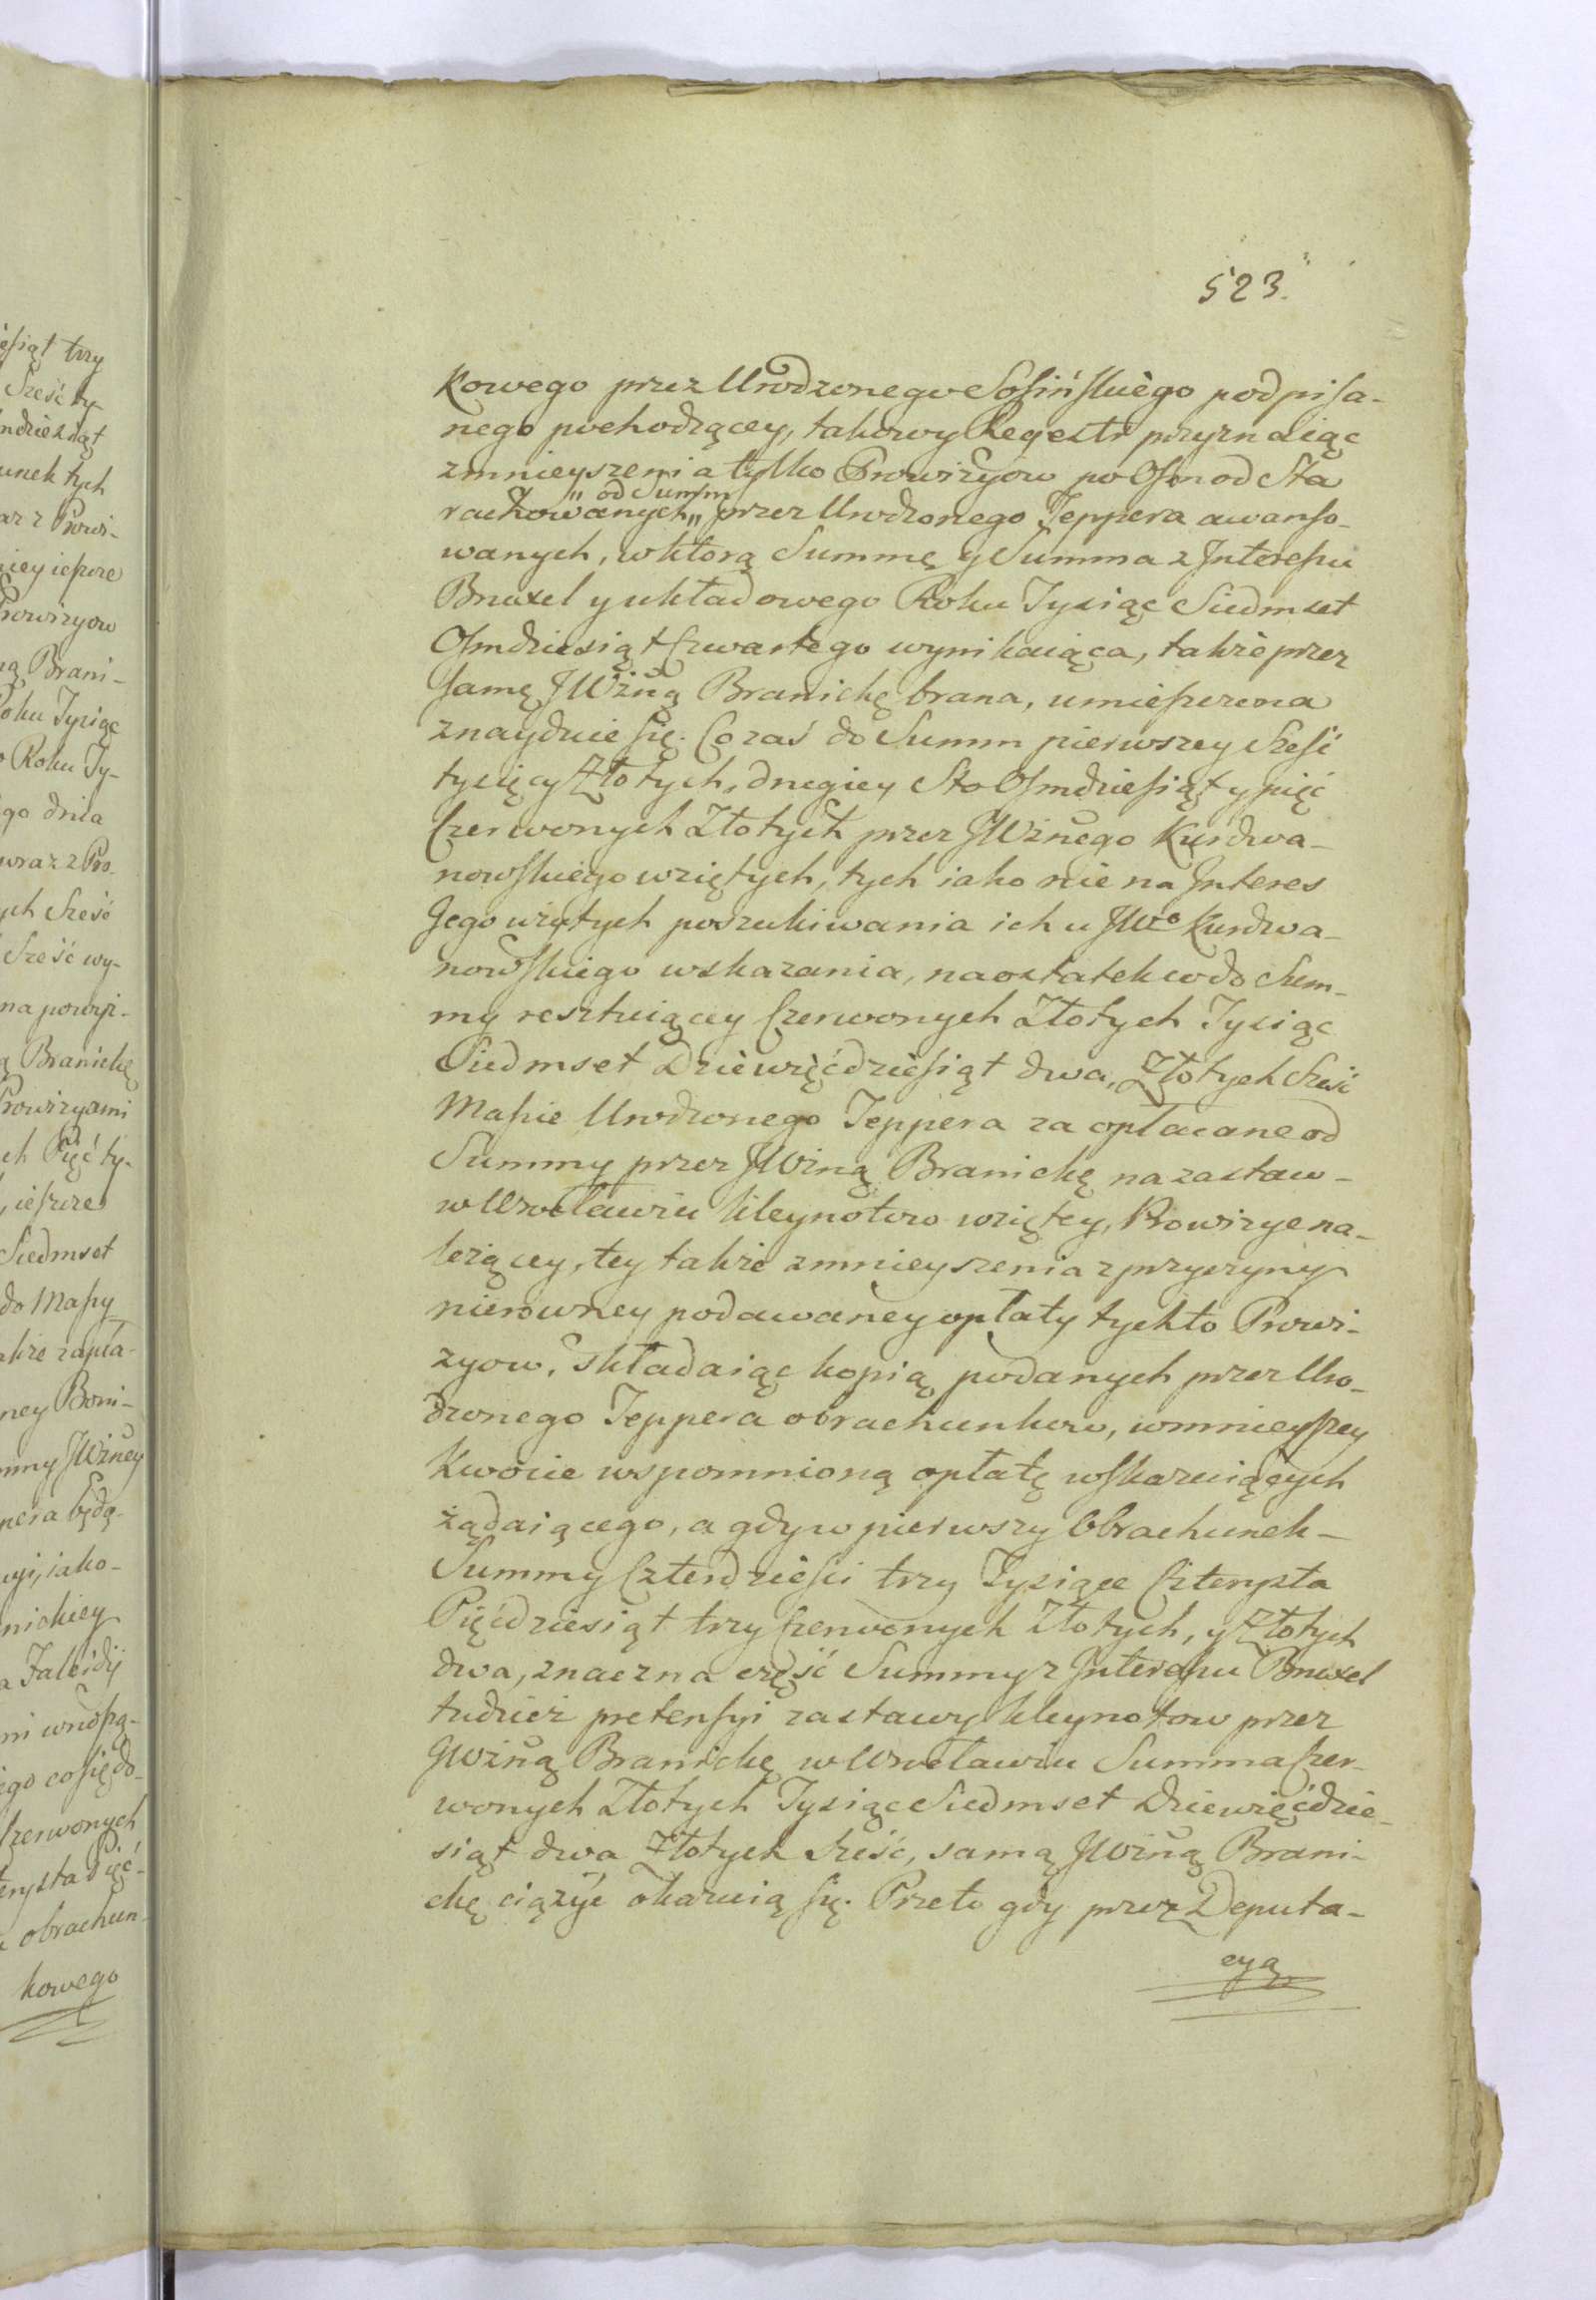 esiąt trzy
Sześć ty-
ndziesiąt
unek tych
az z Prowi-
niey ieszcze
Prowizyow
ną Brani-
oku Tysiąc
o Roku Ty-
go dnia
wraz z Pro-
ych Sześć
Sześć wy-
na powyż-
ą Branickę
Prowizyami
ch Pięć ty-
, ieszcze
Siedmset
do Massy
akże zapła-
ney Boni-
mmy JWżney
pera będą-
yi, iako-
nickiey
a Taleidy
mi wnoszą-
ego co się do-
Czerwonych
terysta Pięć-
obrachun-
kowego
523.
kowego przez Urodzonego Sosińskiego podpisa-
nego pochodzącey, takowy Regestr przyznaiąc
zmnieyszenia tylko Prowizyow po Osm od Sta
" od Summ
rachowanych " przez Urodzonego Teppera awanso-
wanych, w ktorą Summę y Summa z Interessu
Bruxel y układowego Roku Tysiąc Siedmset
Osmdziesiąt Czwartego wynikaiąca, także przez
samę JWżną Branickę brana, umieszczona
znayduie się. Co zaś do Summ pierwszey Sześć
tysięcy Złotych, drugiey Sto Osmdziesiąt y pięć
Czerwonych Złotych przez JWżnego Kurdwa-
nowskiego wziętych, tych iako nie na Interes
Jego wziętych poszukiwania ich u JWo Kurdwa-
nowskiego wskazania, naostatek co do Sum-
my resztuiącey Czerwonych Złotych Tysiąc
Siedmset Dziewięćdziesiąt dwa, Złotych Sześć
Massie Urodzonego Teppera za opłacane od
Summy przez JWżną Branickę na zastaw-
w Wrocławiu kleynotow wziętey, Prowizye na-
leżącey, tey także zmnieyszenia z przyczyny
nierowney podawaney opłaty tychto Prowi-
zyow, składaiąc kopią podanych przez Uro-
dzonego Teppera obrachunkow, w mnieyszey
Kwocie wspomnioną opłatę wskazuiących
żądaiącego, a gdy w pierwszy Obrachunek-
Summy Czterdzieści trzy Tysiące Czterysta
Pięćdziesiąt trzy Czerwonych Złotych, y Złotych
dwa, znaczna część Summy z Interessu Bruxel
tudzież pretensyi zastawy kleynotow przez
JWżną Branickę w Wrocławiu Summa Czer-
wonych Złotych Tysiąc Siedmset Dziewięćdzie-
siąt dwa Złotych Sześć, samą JWżną Brani-
ckę ciążyć okazuią się. Przeto gdy przez Deputa-
cyą